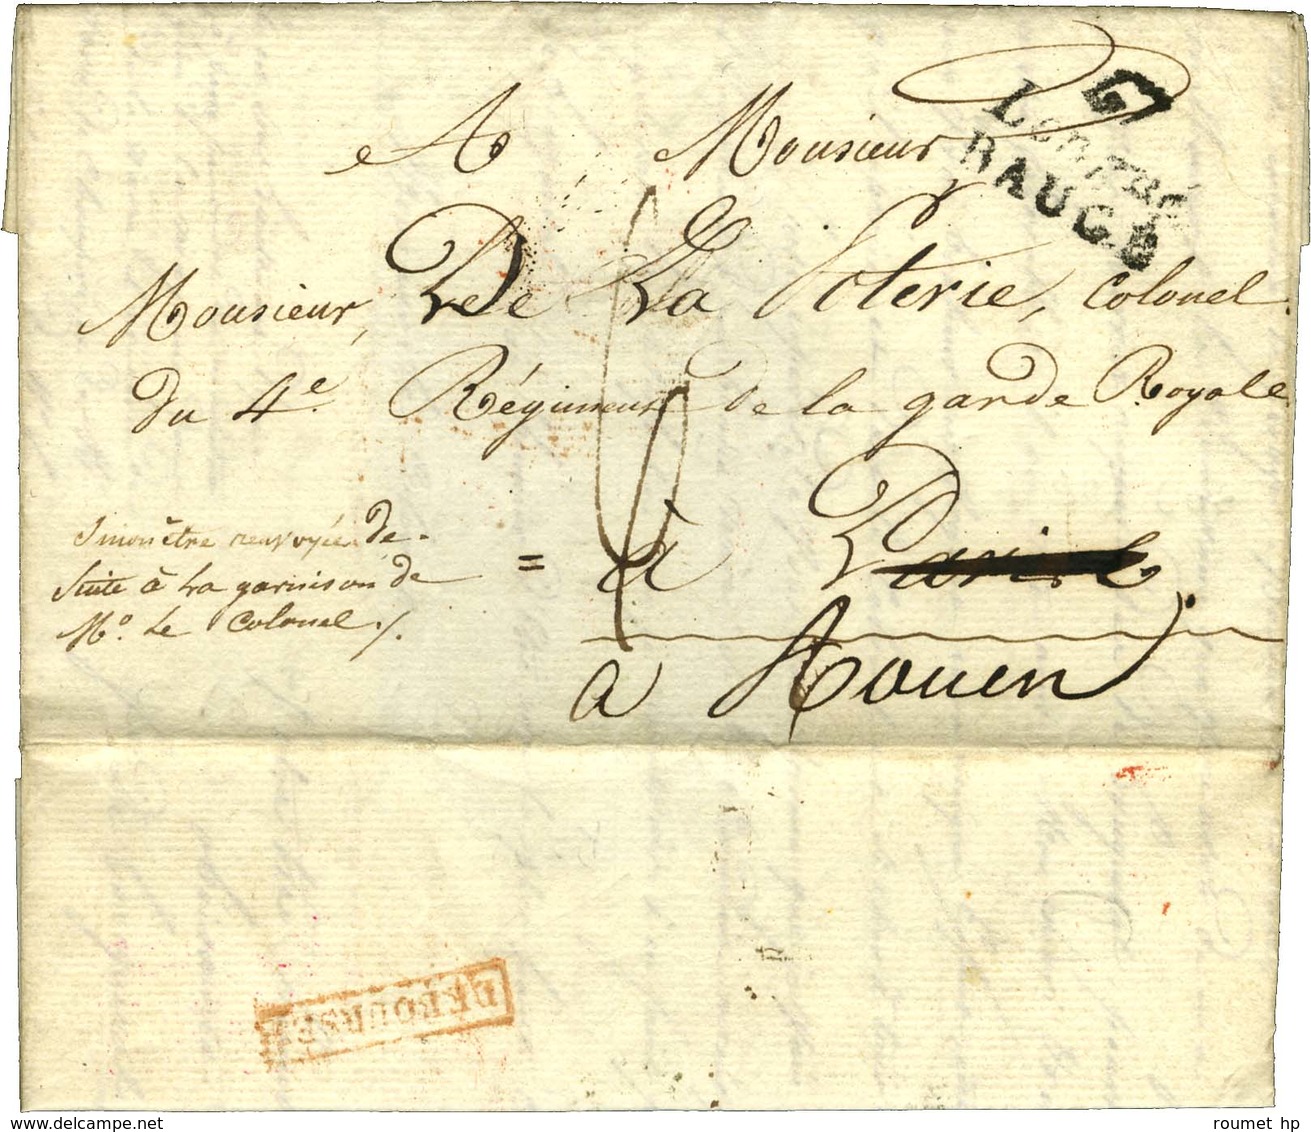 A Monsieur
Monsieur, De La Poterie, Colonel
du 4e. Régiment de la garde Royale
à Paris
a Rouen
Sinon être renvoyée de
Suite à La garnison de
Mr. Le Colonel ./.
=
BAUGÉ
DEBOURSÉ
roumet hp